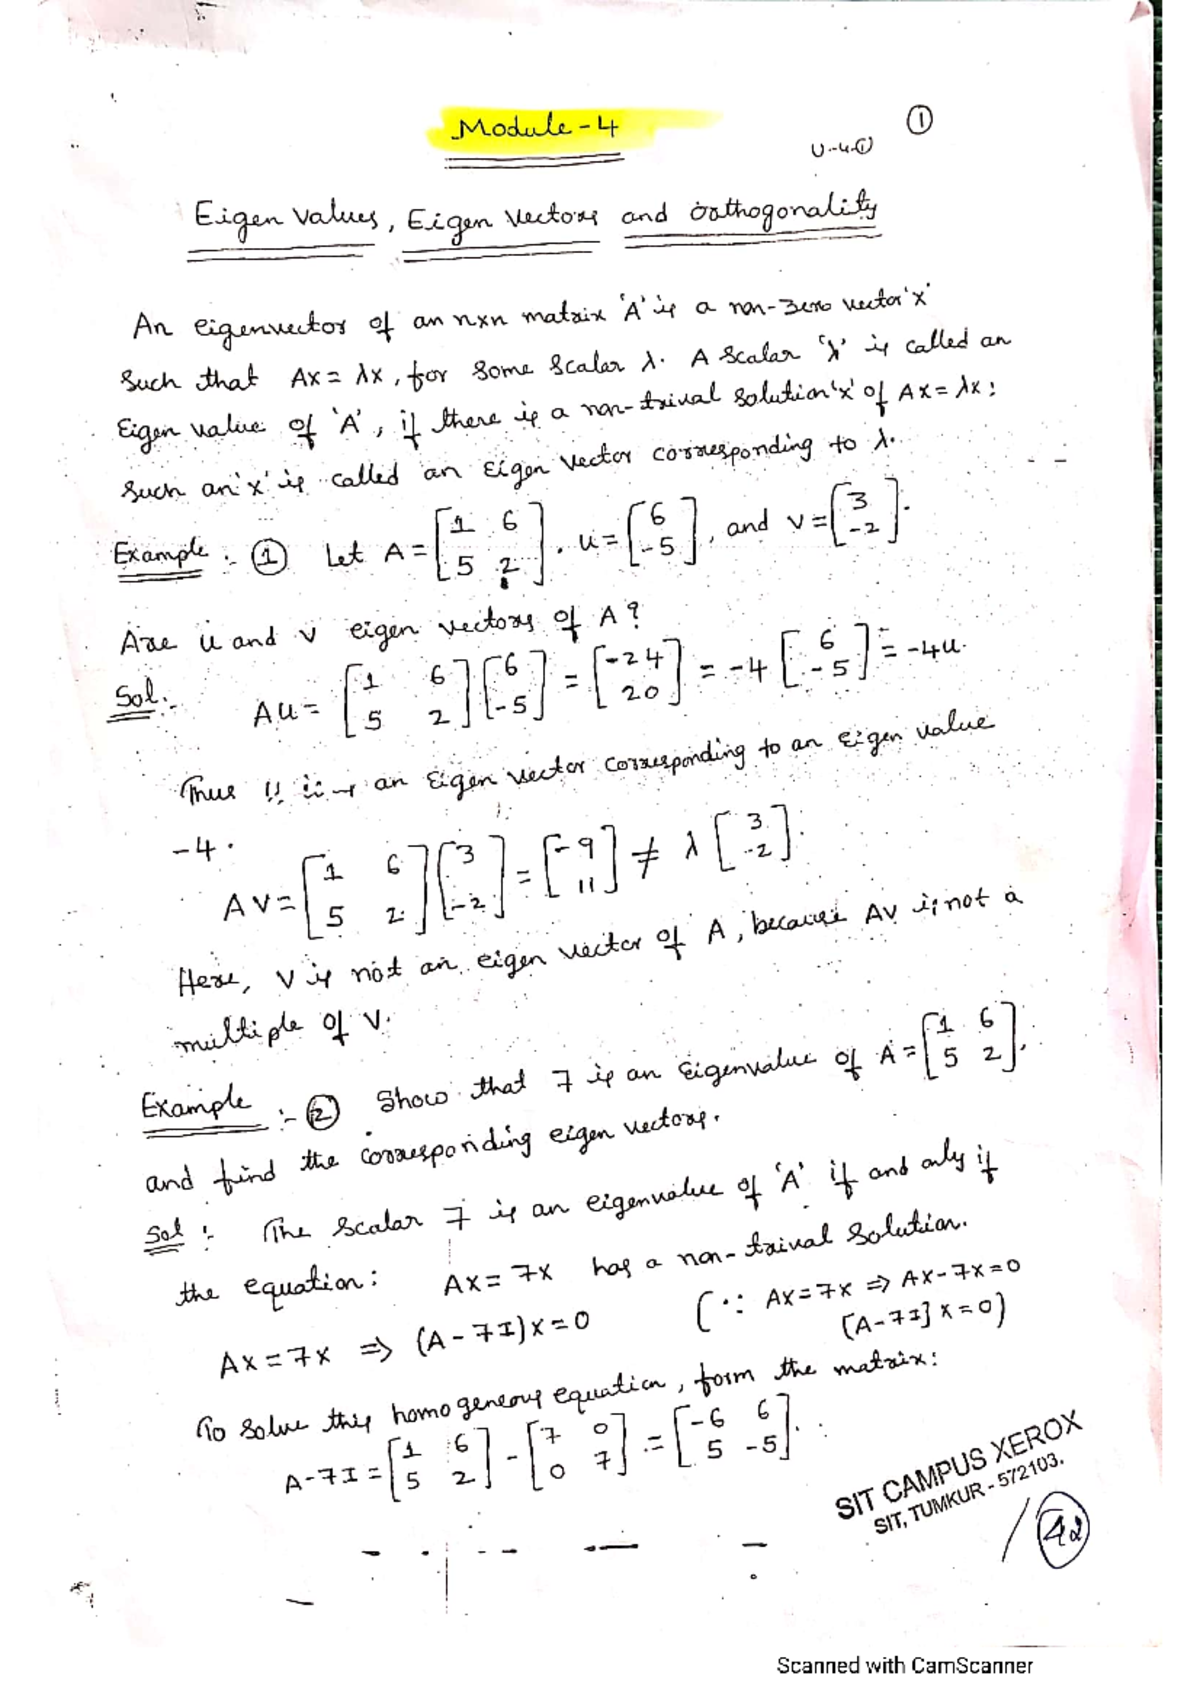 Module-4
①
U-4-①
Eigen values, Eigen vectors and orthogonality
An eigenvector of an nxn matrix 'A' is a non-zero vector 'x'
such that Ax = λx, for some scalar λ. A scalar 'λ' is called an
Eigen value of 'A', if there is a non-trival solution 'x' of Ax = λx;
Such an 'x' is called an Eigen vector corresponding to λ.
Example :- ① Let A = [1 6; 5 2], u = [6; -5], and v = [3; -2].
Are u and v eigen vectors of A?
Sol:- Au = [1 6; 5 2] [6; -5] = [-24; 20] = -4 [6; -5] = -4u.
Thus u is an Eigen vector corresponding to an eigen value
-4.
AV = [1 6; 5 2] [3; -2] = [-9; 11] ≠ λ [3; -2].
Here, V is not an eigen vector of A, because AV is not a
multiple of V.
Example :- ② Show that 7 is an Eigenvalue of A = [1 6; 5 2],
and find the corresponding eigen vectors.
Sol :- The scalar 7 is an eigenvalue of 'A' if and only if
the equation: Ax = 7x has a non-trival solution.
Ax = 7x ⇒ (A - 7I)x = 0 (∵ Ax = 7x ⇒ Ax - 7x = 0
[A - 7I] x = 0)
To solve this homogeneous equation, form the matrix:
A - 7I = [1 6; 5 2] - [7 0; 0 7] = [-6 6; 5 -5].
SIT CAMPUS XEROX
SIT, TUMKUR - 572103.
/42
Scanned with CamScanner